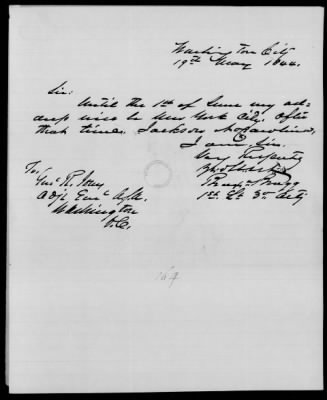 Washington City
19th May 1844.
Sir:
Until the 1st of June my ad-
dress will be New York City. After
that time, Jackson No. Carolina.
I am Sir.
Very Respectly
Yr obt Servt
Braxn Bragg
1st Lt 3rd Arty
To,
Genl R. Jones
Adjt Genl U.S.A.
Washington
D.C.
164